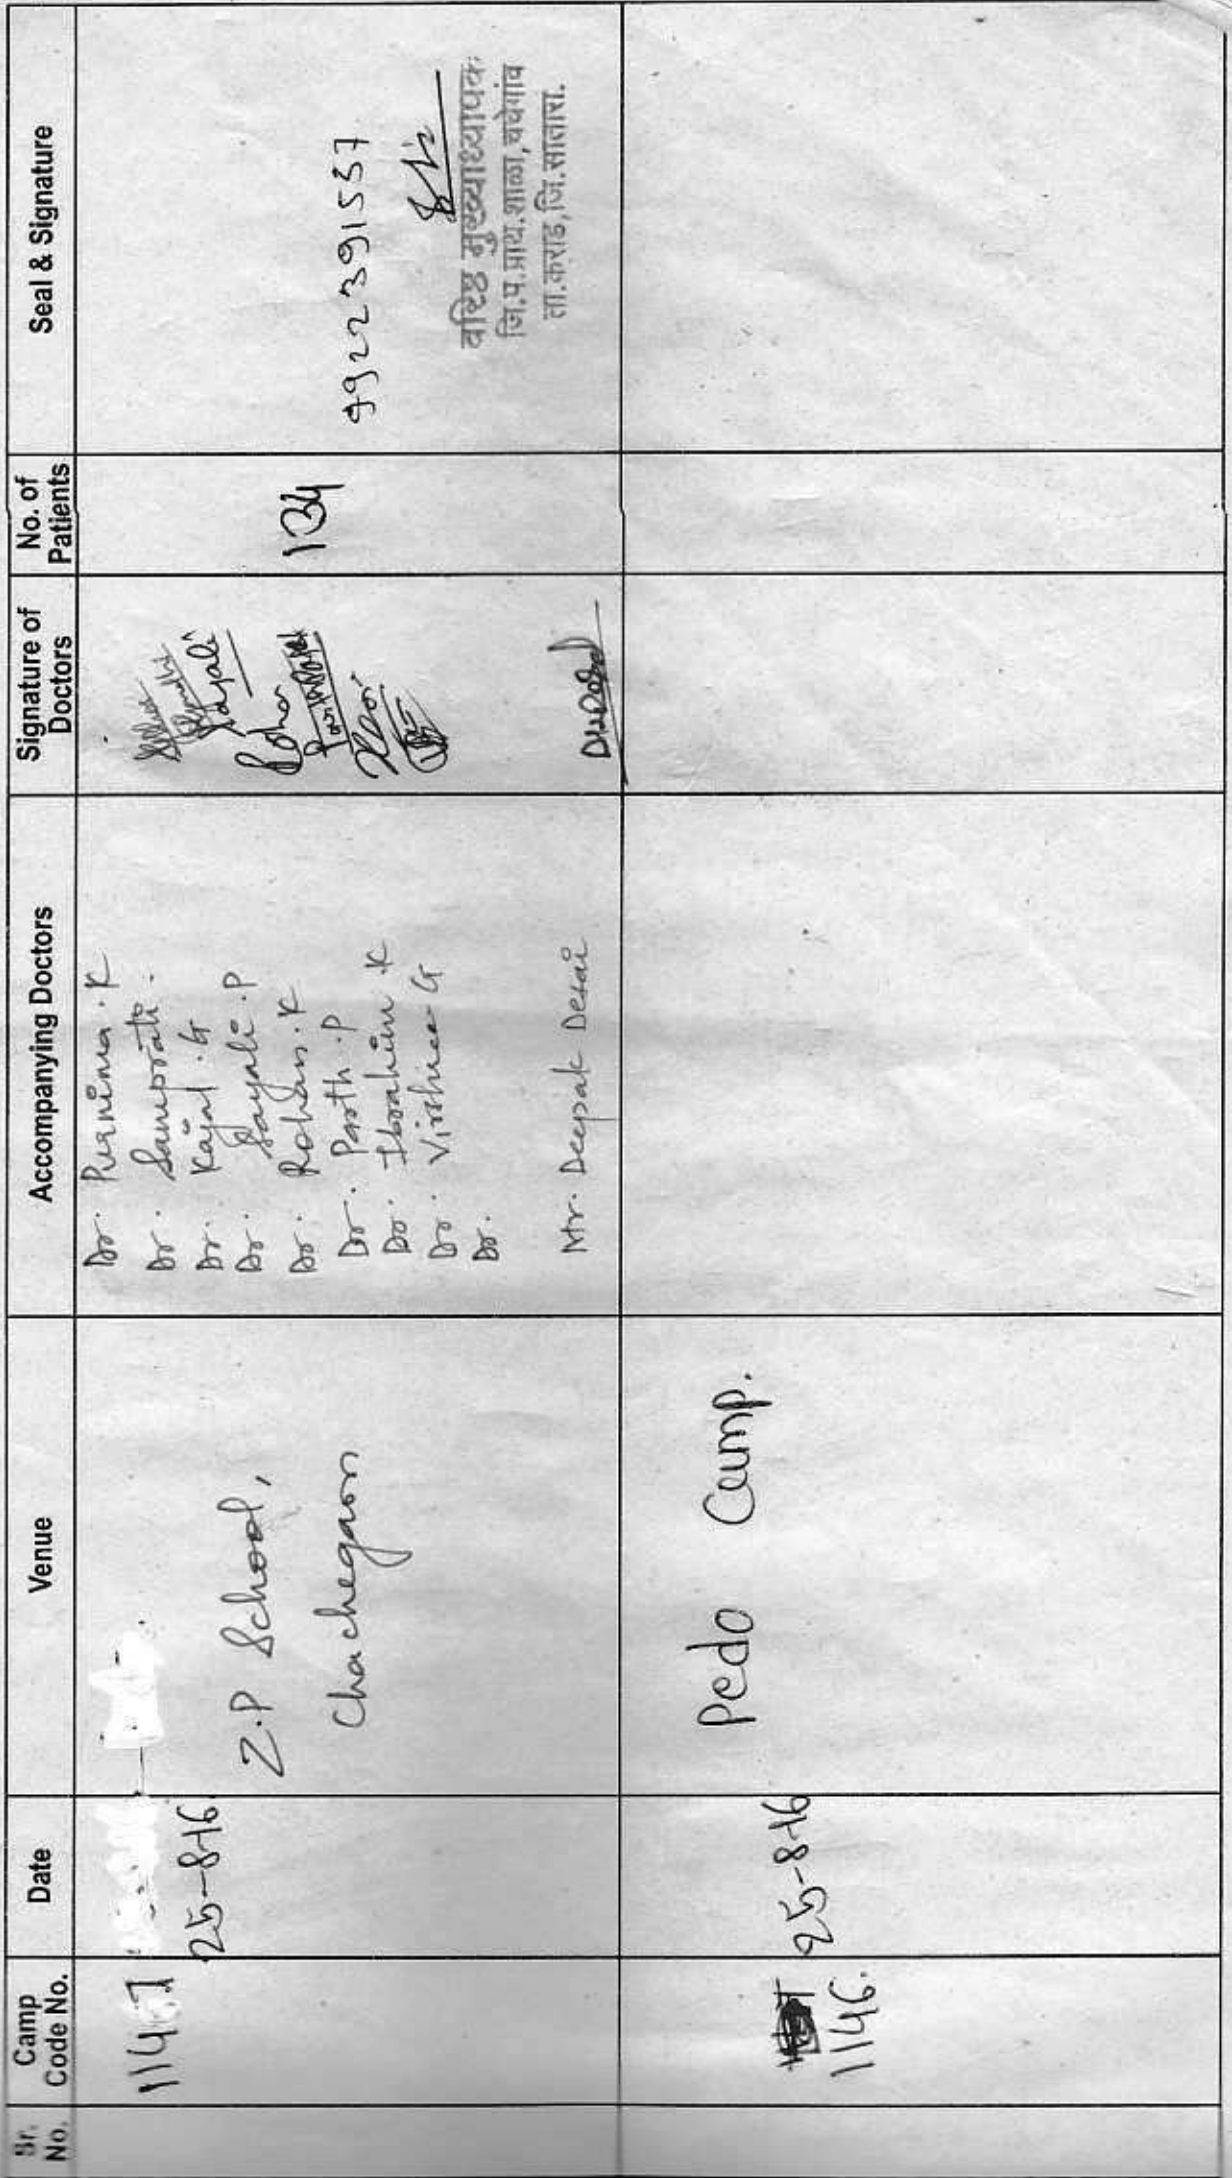 Sr. No.
Camp Code No.
Date
Venue
Accompanying Doctors
Signature of Doctors
No. of Patients
Seal & Signature
1147
25-8-16
Z.P School,
Chachegaon
Dr. Purnima. K
Dr. Samprati.
Dr. Kajal. G
Dr. Sayali. P
Dr. Rohan. K
Dr. Parth. P
Dr. Ibrahim. K
Dr. G
Dr.
Mr. Deepak Desai
Sayali
134
9922391537
वरिष्ठ मुख्याध्यापक
जि.प.प्राथ.शाळा, चचेगांव
ता.कराड, जि.सातारा.
1146.
25-8-16
Pedo Camp.